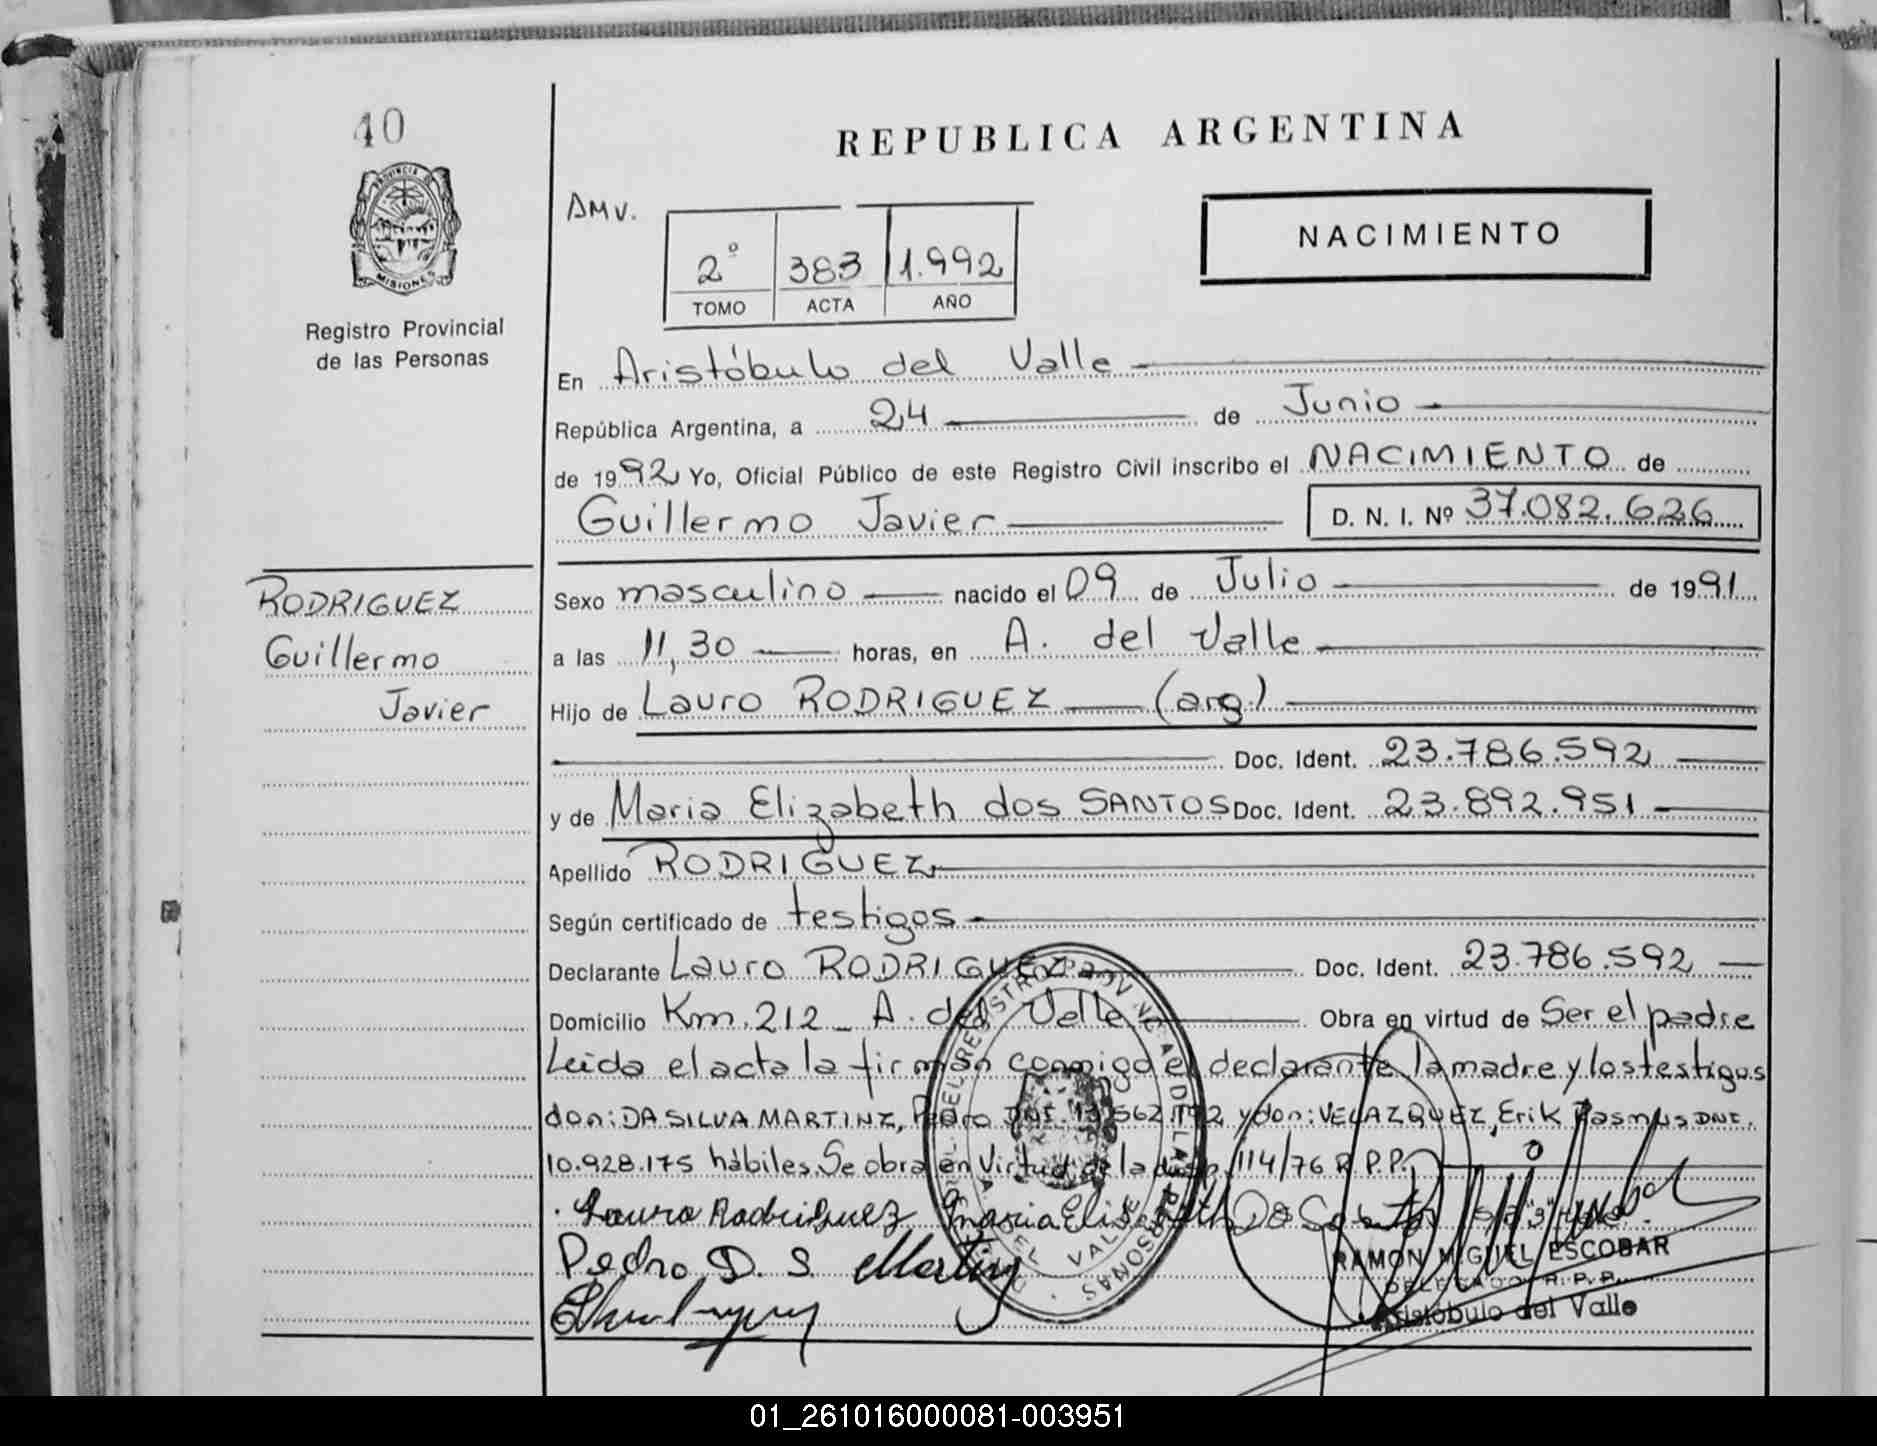 40
PROVINCIA DE
MISIONES
Registro Provincial
de las Personas
REPUBLICA ARGENTINA
AMV.
2º 383 1.992
TOMO ACTA AÑO
NACIMIENTO
En Aristóbulo del Valle
República Argentina, a 24 de Junio
de 1992 Yo, Oficial Público de este Registro Civil inscribo el NACIMIENTO de
Guillermo Javier D. N. I. Nº 37.082.626
RODRIGUEZ
Guillermo
Javier
Sexo masculino nacido el 09 de Julio de 1991
a las 11,30 horas, en A. del Valle
Hijo de Lauro RODRIGUEZ (arg)
Doc. Ident. 23.786.592
y de Maria Elizabeth dos SANTOS Doc. Ident. 23.892.951
Apellido RODRIGUEZ
Según certificado de testigos
Declarante Lauro RODRIGUEZ Doc. Ident. 23.786.592
Domicilio Km. 212 A. del Valle Obra en virtud de Ser el padre
Leida el acta la firman conmigo el declarante, la madre y los testigos
don: DA SILVA MARTINZ, Pedro y don: VELAZQUEZ, Erik Rasmus DNI.
10.928.175 hábiles. Se obra en Virtud de la disp. 114/76 R.P.P.
Lauro Rodriguez Maria Elisabeth
Pedro D. S. Martinz
RAMON MIGUEL ESCOBAR
DELEGADO R.P.P.
Aristóbulo del Valle
01_261016000081-003951